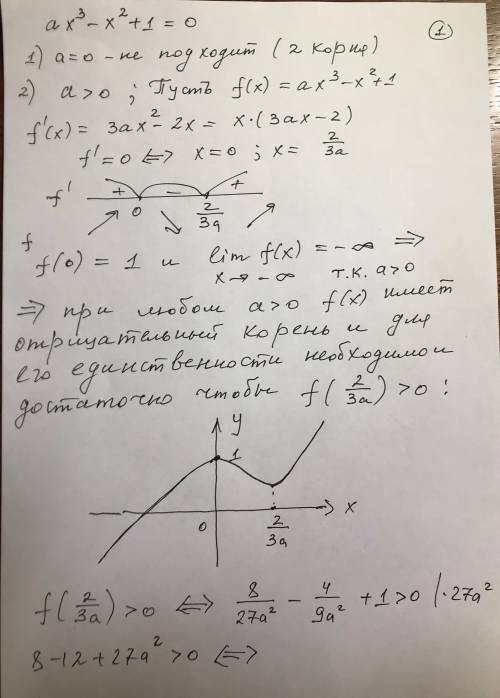 ①
ax³ − x² + 1 = 0
1) a=0 - не подходит (2 корня)
2) a>0 ; Пусть f(x) = ax³−x²+1
f'(x) = 3ax² − 2x = x·(3ax−2)
f'=0 ⟺ x=0 ; x= 2/3a
f' + − +
0 2/3a
f
f(0) = 1 и lim f(x) = −∞ ⟹
x→−∞ т.к. a>0
⟹ при любом a>0 f(x) имеет
отрицательный корень и для
его единственности необходимо и
достаточно чтобы f(2/3a) >0 :
y
1
x
0 2/3a
f(2/3a) >0 ⟺ 8/27a² − 4/9a² + 1>0 |·27a²
8−12+27a² >0 ⟺